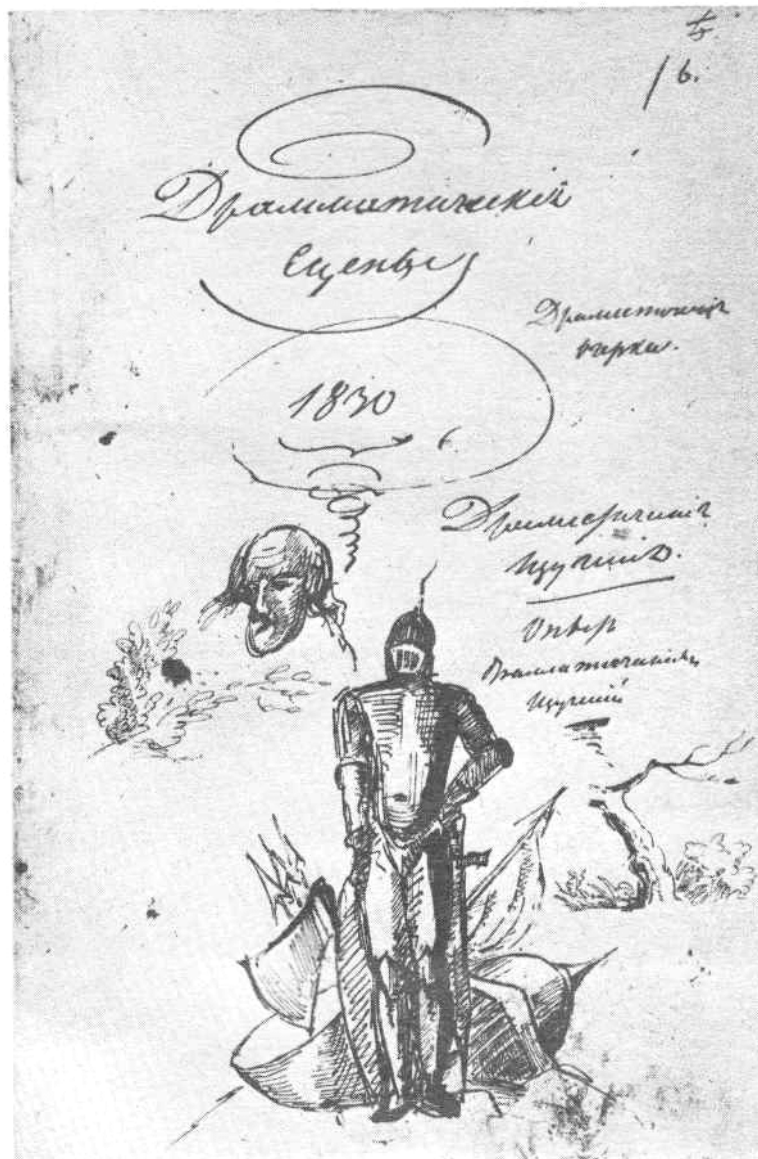 6.
Драмматическiя
сцены
Драматическiе
очерки.
1830
Драматическiя
изученiя.
Опыт
драматических
изучений